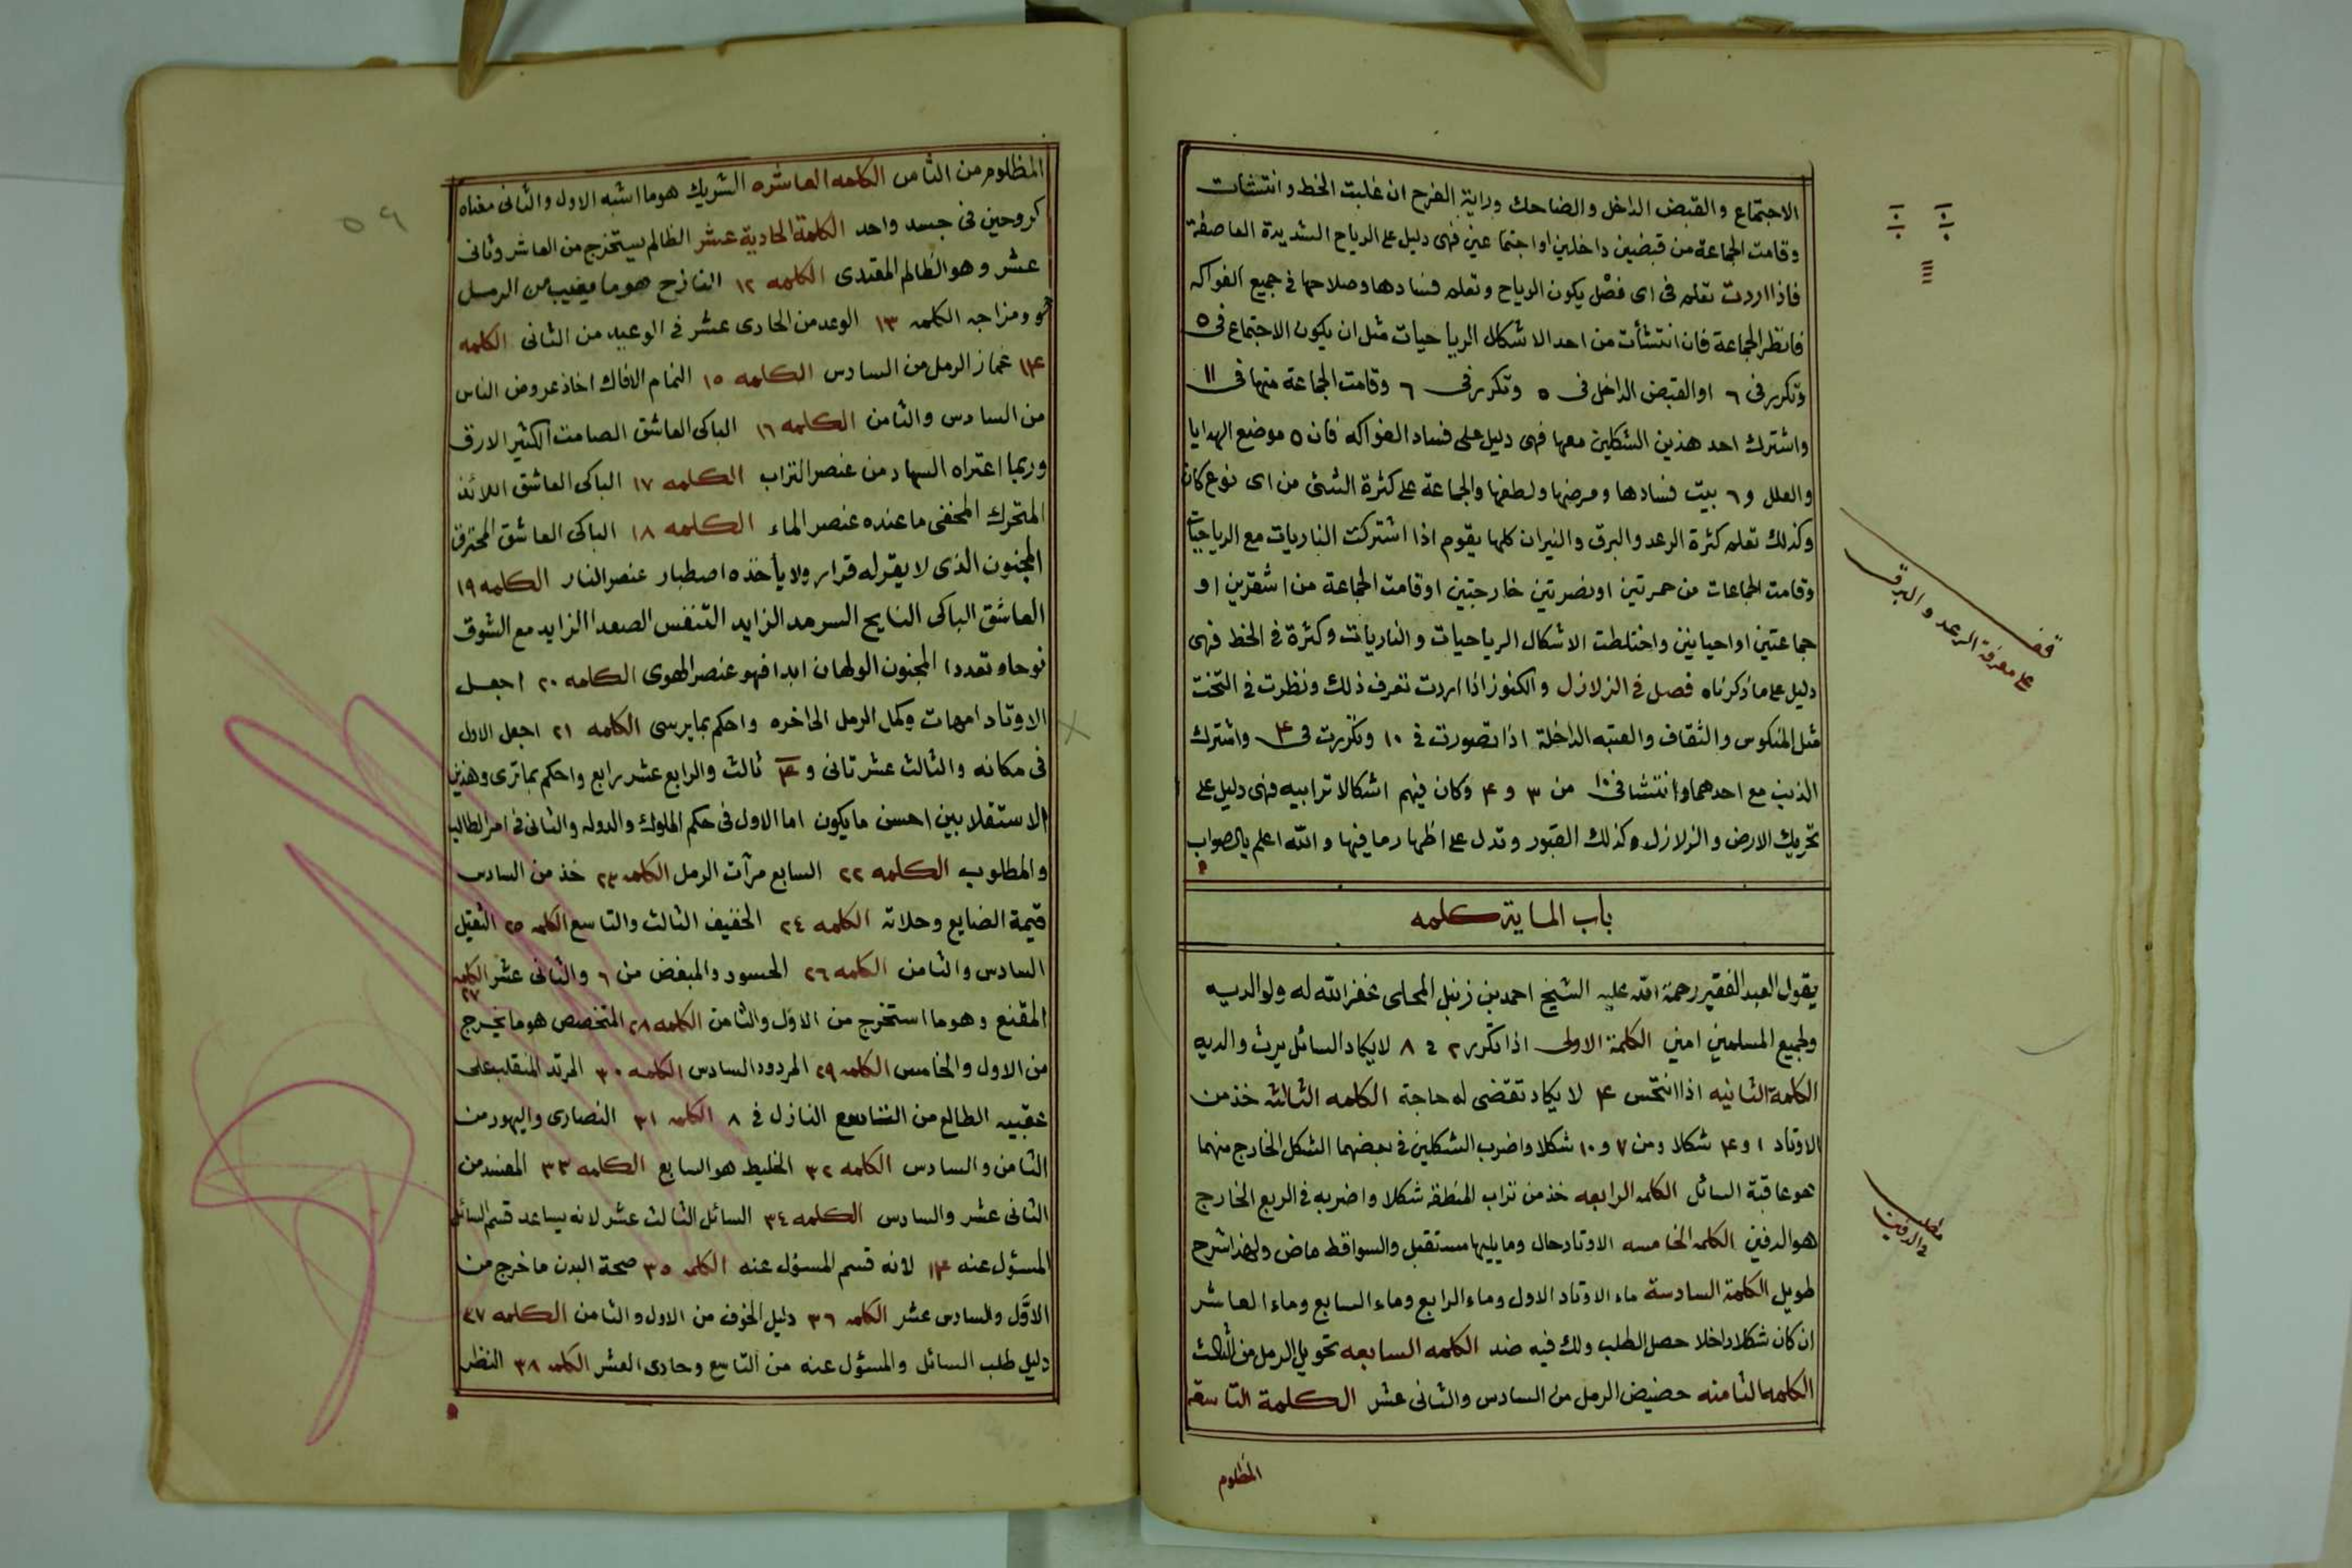 الاجتماع والقبض الداخل والضاحك وراية الفرح ان غلبت الخط وانتشات
وقامت الجماعة من قبضين داخلين او اجتماعين فهى دليل على الرياح الشديدة العاصفة
فاذا اردت تعلم فى اى فصل يكون الرياح وتعلم فسادها وصلاحها فى جميع الفواكه
فانظر الجماعة فان انتشأت من احد الاشكال الرياحيات مثل ان يكون الاجتماع فى ٥
وتكرر فى ٦ او القبض الداخل فى ٥ وتكرر فى ٦ وقامت الجماعة منها فى ١١
واشترك احد هذين الشكلين معها فهى دليل على فساد الفواكه فان ٥ موضع الهدايا
والعلل و ٦ بيت فسادها ومرضها ولطفها والجماعة على كثرة الشئ من اى نوع كان
وكذلك تعلم كثرة الرعد والبرق والنيران كلها يقوم اذا اشتركت الناريات مع الرياحيات
وقامت الجماعات من حمرتين او نصرتين خارجتين او قامت الجماعة من اشقرين او
جماعتين او احيانين واختلطت الاشكال الرياحيات والناريات وكثرة فى الخط فهى
دليل على ما ذكرناه فصل فى الزلازل والكنوز اذا اردت تعرف ذلك ونظرت فى التخت
مثل المنكوس والثقاف والعتبه الداخلة اذا تصورت فى ١٠ وتكررت فى ۴ واشترك
الذنب مع احدهما وانتشا فى ١٠ من ٣ و ۴ وكان فيهم اشكالا ترابيه فهى دليل على
تحريك الارض والزلازل وكذلك القبور وتدل على اظهار ما فيها والله اعلم بالصواب
باب الماية كلمه
يقول العبد الفقير رحمة الله عليه الشيخ احمد بن زنبل المحلى غفر الله له ولوالديه
ولجميع المسلمين امين الكلمة الاولى اذا تكرر ٢ فى ٨ لا يكاد السائل يرث والديه
الكلمة الثانيه اذا انتحس ۴ لا يكاد تقضى له حاجة الكلمه الثالثه خذ من
الاوتاد ١ و ۴ شكلا ومن ٧ و ١٠ شكلا واضرب الشكلين فى بعضهما الشكل الخارج منهما
هو عاقبة السائل الكلمه الرابعه خذ من تراب المنطقه شكلا واضربه فى الربع الخارج
هو الدفين الكلمه الخامسه الاوتاد حال وما يليها مستقبل والسواقط ماض ولهذا شرح
طويل الكلمة السادسة ماء الاوتاد الاول وماء الرابع وماء السابع وماء العاشر
ان كان شكلا داخلا حصل الطلب ولك فيه ضد الكلمه السابعه تحويل الرمل من الثالث
الكلمه الثامنه حضيض الرمل من السادس والثانى عشر الكلمة التاسعة
المظلوم
على معرفة الرعد والبرق
مطلب
فى الدفين
٥٩
المظلوم من الثامن الكلمه العاشره الشريك هو ما اشبه الاول والثانى معناه
كروحين فى جسد واحد الكلمة الحادية عشر الظالم يستخرج من العاشر وثانى
عشر وهو الظالم المعتدى الكلمه ١٢ النازح هو ما يغيب من الرمل
ومزاجه الكلمه ١٣ الوعد من الحادى عشر فى الوعيد من الثانى الكلمه
١۴ غماز الرمل من السادس الكلمه ١٥ النمام الافاك اخاذ عروض الناس
من السادس والثامن الكلمه ١٦ الباكى العاشق الصامت الكثير الارق
وربما اعتراه السهاد من عنصر التراب الكلمه ١٧ الباكى العاشق اللائذ
المتحرك المخفى ما عنده عنصر الماء الكلمه ١٨ الباكى العاشق المحترق
المجنون الذى لا يقر له قرار ولا يأخذه اصطبار عنصر النار الكلمه ١٩
العاشق الباكى النايح السرمد الزايد التنفس الصعدا الزايد مع الشوق
نوحا وتعددا المجنون الولهان ابدا فهو عنصر الهوى الكلمه ٢٠ اجعل
الاوتاد امهات وكمل الرمل الى اخره واحكم بما يرسى الكلمه ٢١ اجعل الاول
فى مكانه والثالث عشر ثانى و ١۴ ثالث والرابع عشر رابع واحكم بما ترى وهذين
الاستقلابين احسن ما يكون اما الاول فى حكم الملوك والدوله والثانى فى امر الطالب
والمطلوب الكلمه ٢٢ السابع مرآت الرمل الكلمه ٢٣ خذ من السادس
قيمة الضايع وحلاته الكلمه ٢٤ الخفيف الثالث والتاسع الكلمه ٢٥ الثقيل
السادس والثامن الكلمه ٢٦ الحسود والمبغض من ٦ والثانى عشر الكلمه ٢٧
المقنع وهو ما استخرج من الاول والثامن الكلمه ٢٨ المتخصص هو ما يخرج
من الاول والخامس الكلمه ٢٩ المردود السادس الكلمه ٣٠ المرتد المنقلب على
عقبيه الطالع من التاسع النازل فى ٨ الكلمه ٣١ النصارى واليهود من
الثامن والسادس الكلمه ٣٢ الخليط هو السابع الكلمه ٣٣ المفسد من
الثانى عشر والسادس الكلمه ٣٤ السائل الثالث عشر لانه يساعد قسم السائل
المسئول عنه ١۴ لانه قسم المسئول عنه الكلمه ٣٥ صحة البدن ما خرج من
الاول والسادس عشر الكلمه ٣٦ دليل الخوف من الاول والثامن الكلمه ٣٧
دليل طلب السائل والمسئول عنه من التاسع وحادى العشر الكلمه ٣٨ النظر